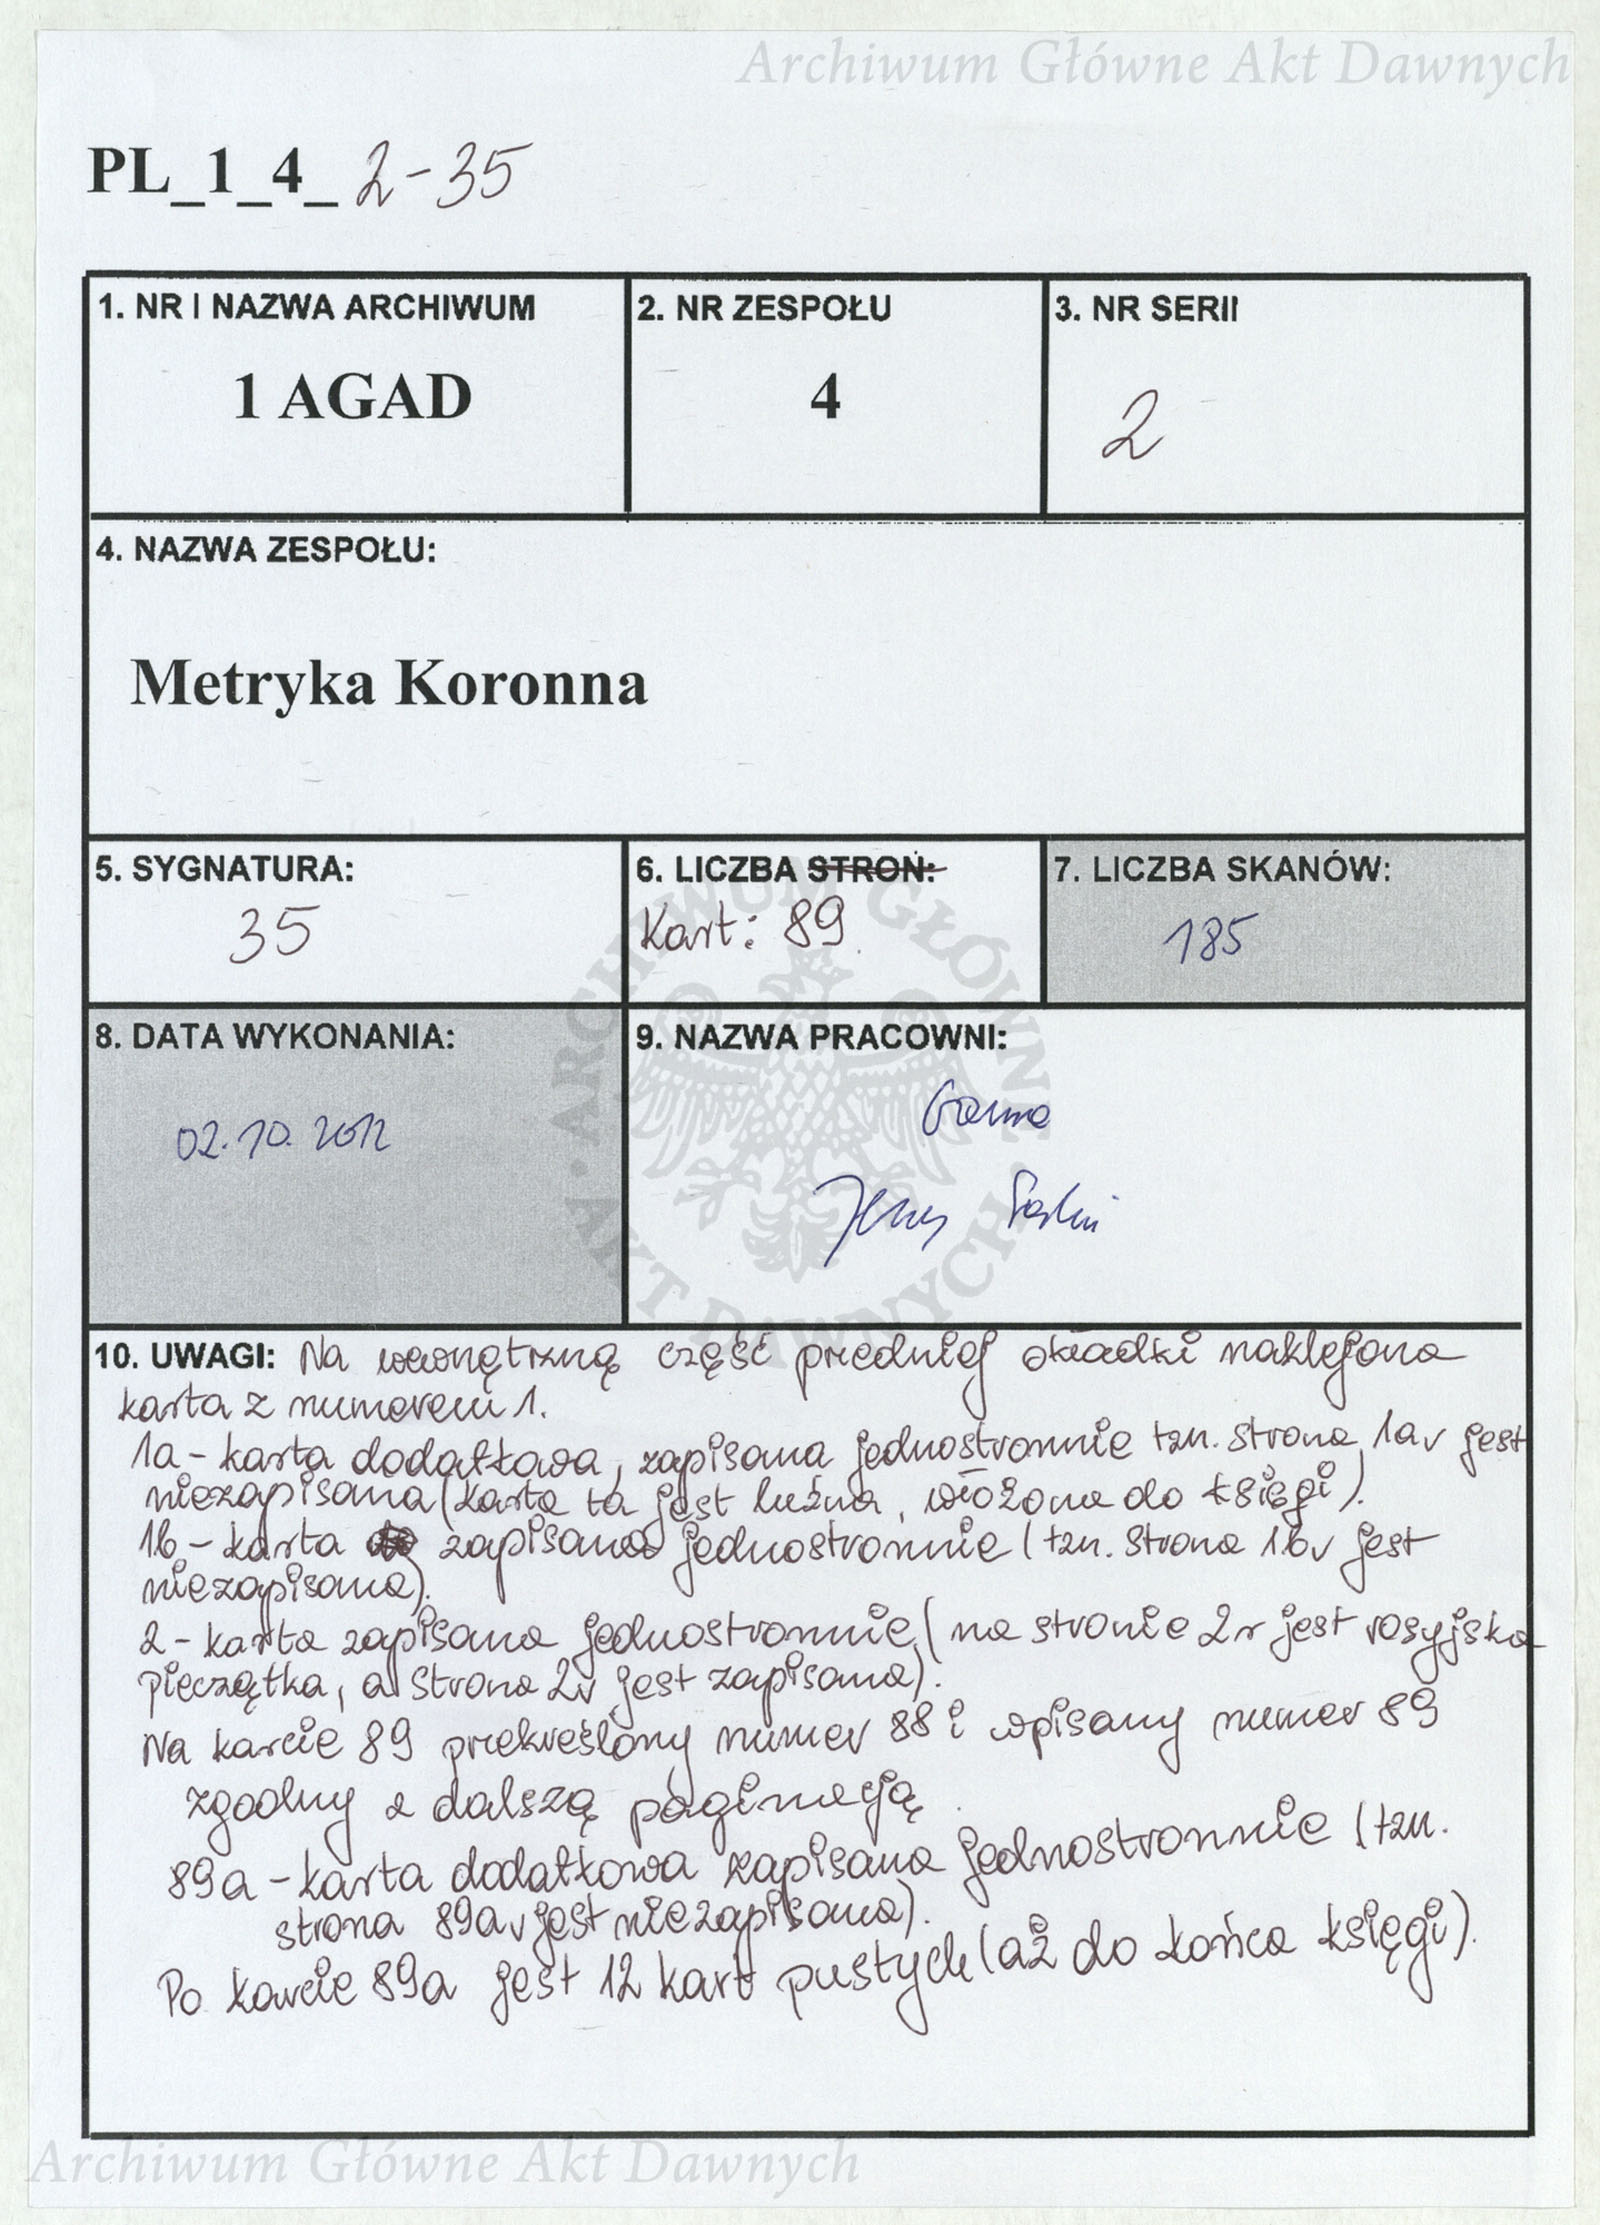 Archiwum Główne Akt Dawnych
PL_1_4_ 2-35
1. NR I NAZWA ARCHIWUM
1 AGAD
2. NR ZESPOŁU
4
3. NR SERII
2
4. NAZWA ZESPOŁU:
Metryka Koronna
5. SYGNATURA:
35
6. LICZBA STRON:
Kart: 89
7. LICZBA SKANÓW:
185
8. DATA WYKONANIA:
02.10.2012
9. NAZWA PRACOWNI:
ARCHIWUM GŁÓWNE AKT DAWNYCH
10. UWAGI: Na wewnętrzną część przedniej okładki naklejona
karta z numerem 1.
1a - karta dodatkowa, zapisana jednostronnie tzn. strona 1av jest
niezapisana (karta ta jest luźna, włożona do księgi).
1b - karta zapisana jednostronnie (tzn. strona 1bv jest
niezapisana).
2 - karta zapisana jednostronnie (na stronie 2r jest rosyjska
pieczątka, a strona 2v jest zapisana).
Na karcie 89 przekreślony numer 88 i wpisany numer 89
zgodny z dalszą paginacją.
89a - karta dodatkowa zapisana jednostronnie (tzn.
strona 89av jest niezapisana).
Po karcie 89a jest 12 kart pustych (aż do końca księgi).
Archiwum Główne Akt Dawnych